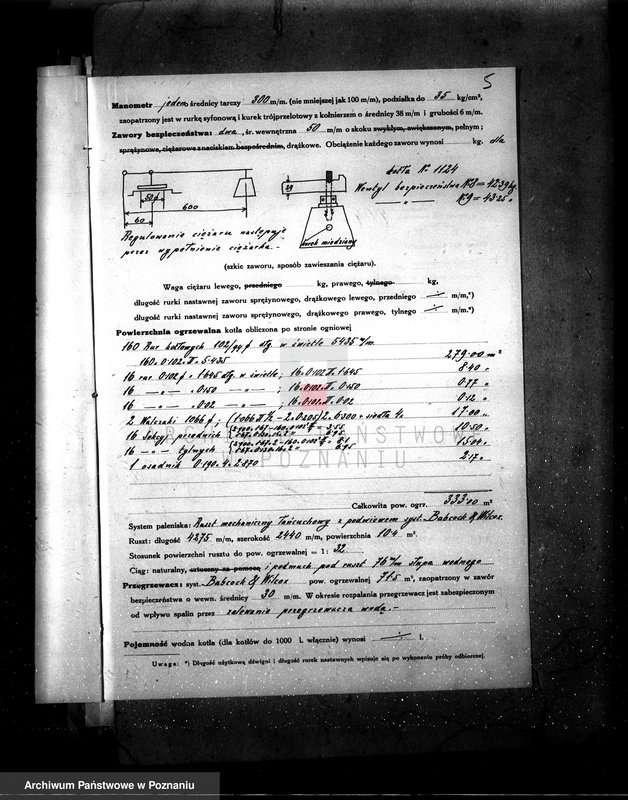 5
Manometr jeden średnicy tarczy 300 m/m. (nie mniejszej jak 100 m/m), podziałka do 35 kg/cm²,
zaopatrzony jest w rurkę syfonową i kurek trójprzelotowy z kołnierzem o średnicy 38 m/m i grubości 6 m/m.
Zawory bezpieczeństwa: dwa, śr. wewnętrzna 50 m/m o skoku zwykłym, zwiększonym, pełnym;
sprężynowe, ciężarowe z naciskiem bezpośrednim, drążkowe. Obciążenie każdego zaworu wynosi kg. dla
kotła № 1124
Wentyl bezpieczeństwa № 8 = 42.39 kg.
— „ — № 9 = 43.25 „
29
50 ∮
600
60
Regulowanie ciężaru następuje
przez wypełnienie ciężarka. —
korek miedziany
(szkic zaworu, sposób zawieszania ciężaru).
Waga ciężaru lewego, przedniego kg, prawego, tylnego kg,
długość rurki nastawnej zaworu sprężynowego, drążkowego lewego, przedniego m/m,*)
długość rurki nastawnej zaworu sprężynowego, drążkowego prawego, tylnego m/m.*)
Powierzchnia ogrzewalna kotła obliczona po stronie ogniowej
160 Rur kotłowych 102/94 ∮ dłg. w świetle 5435 m/m
160. 0.102. π. 5.435 279.00 m²
16 rur 0.102 ∮ × 1.645 dłg. w świetle; 16. 0.102 π. 1.645 8.40 „
16 — „ — 0.150 — „ — ; 16. 0.102. π. 0.150 0.77 „
16 — „ — 0.02 — „ — 16. 0.102. π. 0.02 0.12 „
2 Walczaki 1066 ∮; 17.00 „
16 Sekcyj przednich 10.50 „
16 — „ — tylnych 15.04 „
1 osadnik 0.190. 4. 2.870 2.17 „
Całkowita pow. ogrz. 333.00 m²
System paleniska: Ruszt mechaniczny łańcuchowy z podwiewem syst. Babcock & Wilcox.
Ruszt: długość 4275 m/m, szerokość 2440 m/m, powierzchnia 10.4 m².
Stosunek powierzchni rusztu do pow. ogrzewalnej = 1: 32
Ciąg: naturalny, sztuczny za pomocą i podmuch pod ruszt 76 m/m słupa wodnego
Przegrzewacz: syst. Babcock & Wilcox pow. ogrzewalnej 77.5 m², zaopatrzony w zawór
bezpieczeństwa o wewn. średnicy 30 m/m. W okresie rozpalania przegrzewacz jest zabezpieczonym
od wpływu spalin przez zalewanie przegrzewacza wodą. —
Pojemność wodna kotła (dla kotłów do 1000 l. włącznie) wynosi l.
Uwaga: *) Długość użytkową dźwigni i długość rurek nastawnych wpisuje się po wykonaniu próby odbiorczej.
ARCHIWUM PAŃSTWOWE
W POZNANIU
Archiwum Państwowe w Poznaniu